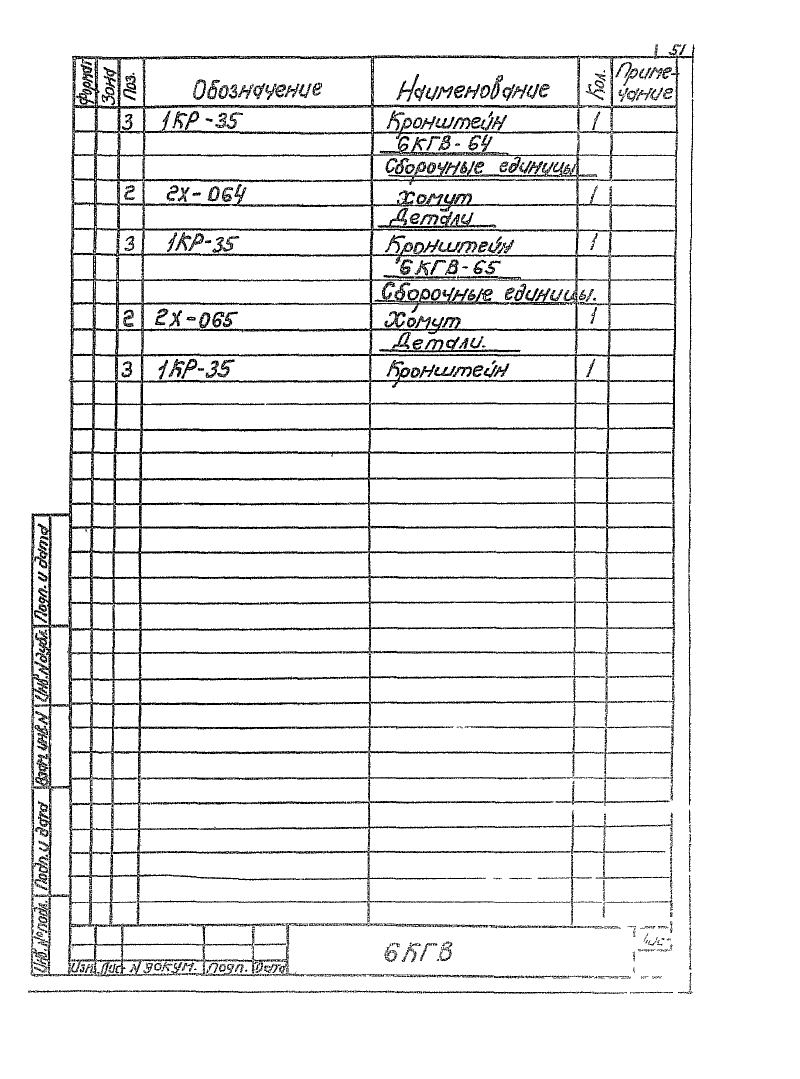 51
Формат Зона Поз. Обозначение Наименование Кол. Приме-
чание
3 1КР-35 Кронштейн 1
6КГВ-64
Сборочные единицы
2 2Х-064 Хомут 1
Детали
3 1КР-35 Кронштейн 1
6КГВ-65
Сборочные единицы.
2 2Х-065 Хомут 1
Детали.
3 1КР-35 Кронштейн 1
Подп. и дата
Инв. N дубл.
Взам. инв. N
Подп. и дата
Инв. № подл.
6КГВ
Лис
Изм. Лис N докум. Подп. Дата